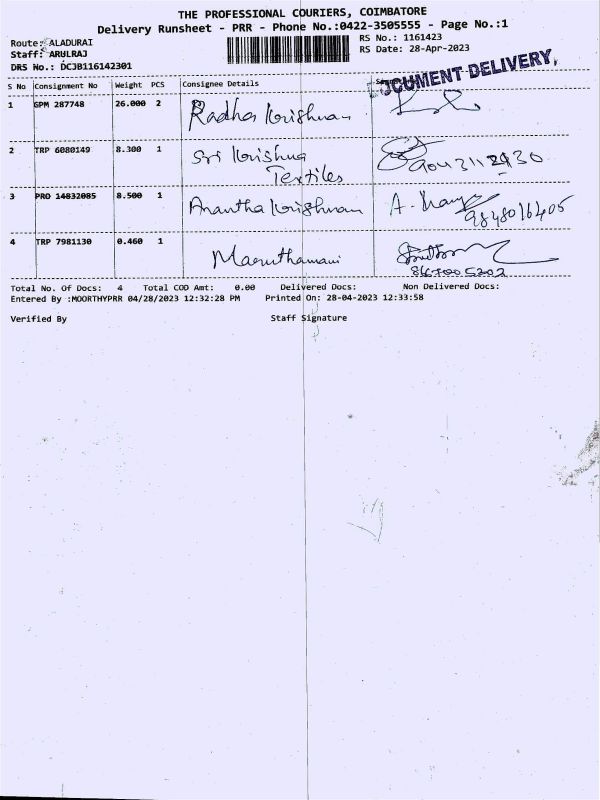 THE PROFESSIONAL COURIERS, COIMBATORE
Delivery Runsheet - PRR - Phone No.:0422-3505555 - Page No.:1
Route: ALADURAI RS No.: 1161423
Staff: ARULRAJ RS Date: 28-Apr-2023
DRS No.: DCJB116142301
DOCUMENT DELIVERY,
S No Consignment No Weight PCS Consignee Details
1 GPM 287748 26.000 2 Radha Krishnan
2 TRP 6080149 8.300 1 Sri Krishna
Textiles
3 PRO 14832085 8.500 1 Anantha Krishnan
9848016405
4 TRP 7981130 0.460 1 Maruthamani
Total No. Of Docs: 4 Total COD Amt: 0.00 Delivered Docs: Non Delivered Docs:
Entered By :MOORTHYPRR 04/28/2023 12:32:28 PM Printed On: 28-04-2023 12:33:58
Verified By Staff Signature